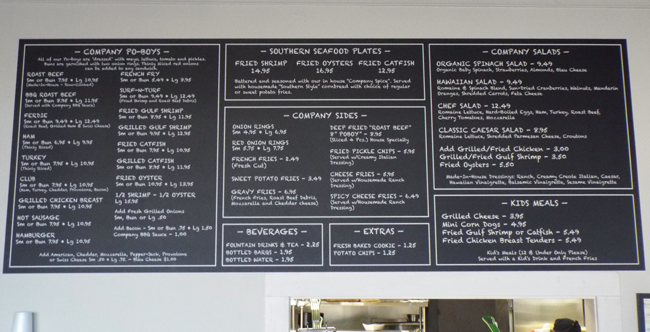 — COMPANY PO-BOYS —
All of our Po-Boys are "dressed" with mayo, lettuce, tomato and pickles.
Buns are garnished with two onion rings. Thinly sliced red onions
can be added to any sandwich.
ROAST BEEF
Sm or Bun 7.95 * Lg 10.95
BBQ ROAST BEEF
Sm or Bun 8.95 * Lg 11.95
(Served with Company BBQ Sauce)
FERDIE
Sm or Bun 9.49 * Lg 12.49
HAM
Sm or Bun 6.95 * Lg 9.95
(Thinly Sliced)
TURKEY
Sm or Bun 7.95 * Lg 10.95
(Thinly Sliced)
CLUB
Sm or Bun 7.95 * Lg 10.95
(Ham, Turkey, Cheddar, Provolone, Bacon)
GRILLED CHICKEN BREAST
Sm or Bun 7.95 * Lg 10.95
HOT SAUSAGE
Sm or Bun 7.95 * Lg 10.95
HAMBURGER
Sm or Bun 7.95 * Lg 10.95
FRENCH FRY
Sm or Bun 5.49 * Lg 8.95
SURF-N-TURF
Sm or Bun 9.49 * Lg 12.49
(Fried Shrimp and Roast Beef Debris)
FRIED GULF SHRIMP
Sm or Bun 8.95 * Lg 11.95
GRILLED GULF SHRIMP
Sm or Bun 9.95 * Lg 12.95
FRIED CATFISH
Sm or Bun 7.95 * Lg 10.95
GRILLED CATFISH
Sm or Bun 8.95 * Lg 11.95
FRIED OYSTER
Sm or Bun 10.95 * Lg 13.95
1/2 SHRIMP - 1/2 OYSTER
Lg 15.95
Add Fresh Grilled Onions
Sm, Bun or Lg .50
Add Bacon - Sm or Bun .75 * Lg 1.50
Company BBQ Sauce - 1.00
Add American, Cheddar, Mozzarella, Pepper-Jack, Provolone
or Swiss Cheese Sm .50 * Lg .75 - Bleu Cheese $1.00
— SOUTHERN SEAFOOD PLATES —
FRIED SHRIMP FRIED OYSTERS FRIED CATFISH
14.95 16.95 12.95
Battered and seasoned with our in house "Company Spice". Served
with housemade "Southern Style" cornbread with choice of regular
or sweet potato fries.
— COMPANY SIDES —
ONION RINGS
Sm 4.95 * Lg 6.95
RED ONION RINGS
Sm 5.75 * Lg 7.75
FRENCH FRIES - 2.49
(Fresh Cut)
SWEET POTATO FRIES - 3.49
GRAVY FRIES - 6.95
(French Fries, Roast Beef Debris,
Mozzarella and Cheddar cheese)
DEEP FRIED "ROAST BEEF"
5" POBOY - 8.95
(Sliced 4 Pcs) House Specialty
FRIED PICKLE CHIPS - 5.95
(Served w/Creamy Italian
Dressing)
CHEESE FRIES - 5.95
(Served w/Housemade Ranch
Dressing)
SPICY CHEESE FRIES - 6.49
(Served w/Housemade Ranch
Dressing)
— BEVERAGES —
FOUNTAIN DRINKS & TEA - 2.25
BOTTLED BARQS - 1.95
BOTTLED WATER - 1.95
— EXTRAS —
FRESH BAKED COOKIE - 1.25
POTATO CHIPS - 1.25
— COMPANY SALADS —
ORGANIC SPINACH SALAD - 9.49
Organic Baby Spinach, Strawberries, Almonds, Bleu Cheese
HAWAIIAN SALAD - 9.95
Romaine & Spinach Blend, Sun-Dried Cranberries, Walnuts, Mandarin
Oranges, Shredded Carrots, Feta Cheese
CHEF SALAD - 12.49
Romaine Lettuce, Hard-Boiled Eggs, Ham, Turkey, Roast Beef,
Cherry Tomatoes, Mozzarella
CLASSIC CAESAR SALAD - 8.95
Romaine Lettuce, Shredded Parmesan Cheese, Croutons
Add Grilled/Fried Chicken - 3.00
Grilled/Fried Gulf Shrimp - 3.50
Fried Oysters - 5.50
Made-In-House Dressings: Ranch, Creamy Creole Italian, Caesar,
Hawaiian Vinaigrette, Balsamic Vinaigrette, Sesame Vinaigrette
— KIDS MEALS —
Grilled Cheese - 3.95
Mini Corn Dogs - 4.95
Fried Gulf Shrimp or Catfish - 5.49
Fried Chicken Breast Tenders - 5.49
Kid's Meals (12 & Under Only Please)
Served with a Kid's Drink and French Fries